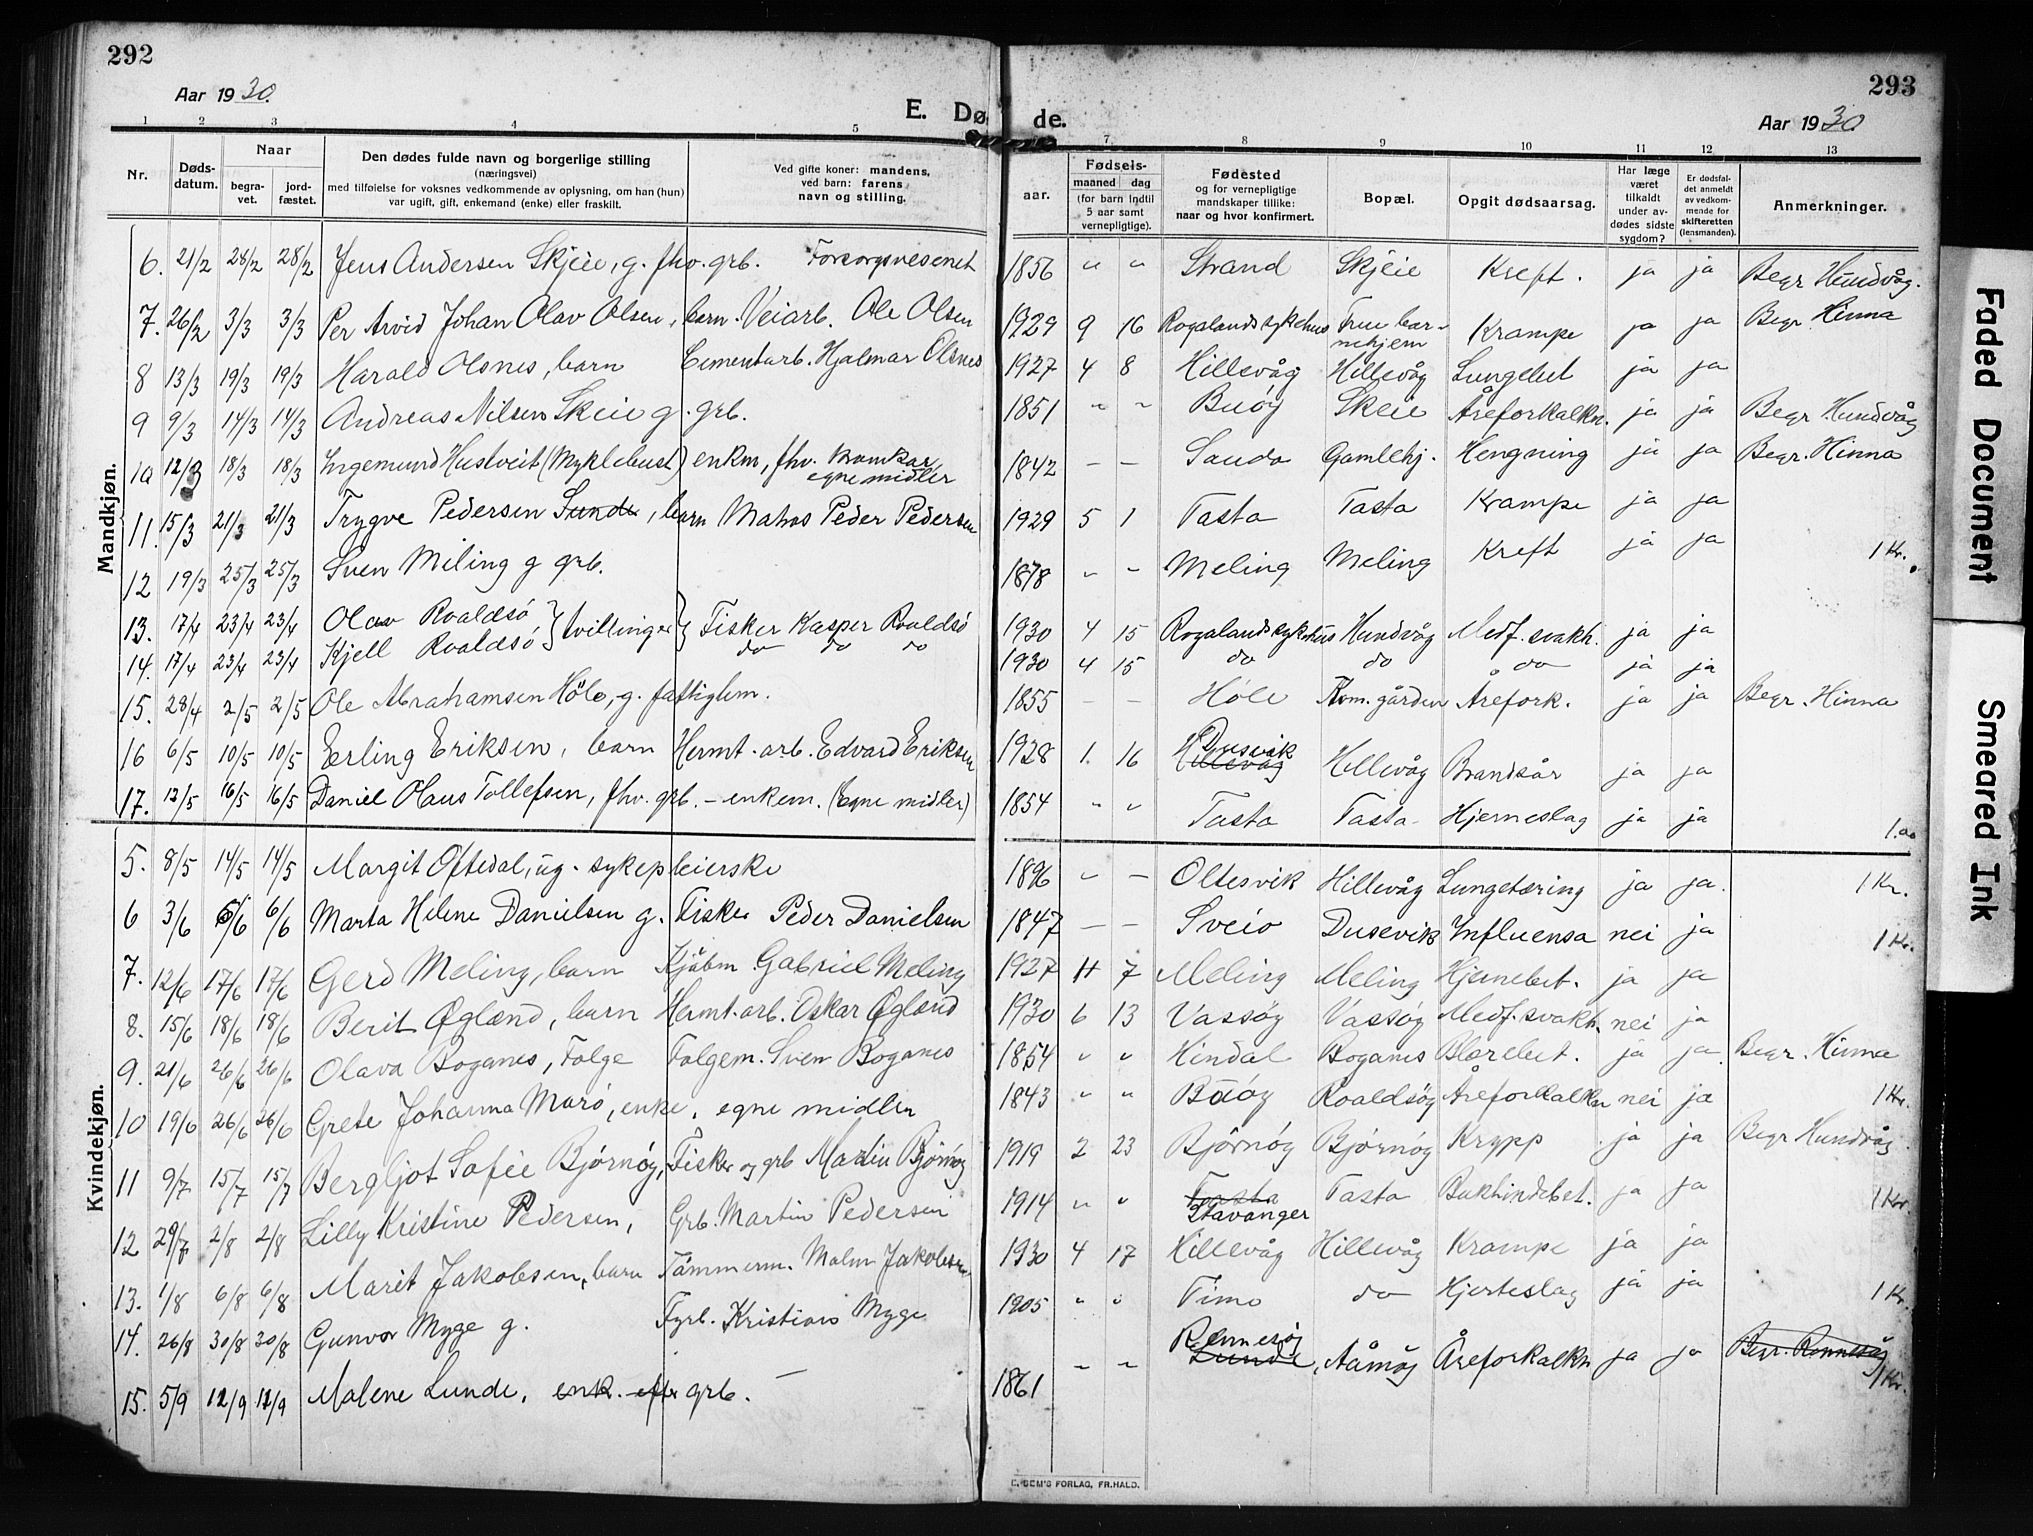 292
Aar 1930.
E. Dø
1 2 3 4 5
Nr.
Døds-
datum.
Naar
begra-
vet.
jord-
fæstet.
Den dødes fulde navn og borgerlige stilling
(næringsvei)
med tilføielse for voksnes vedkommende av oplysning, om han (hun)
var ugift, gift, enkemand (enke) eller fraskilt.
Ved gifte koner: mandens,
ved barn: farens
navn og stilling.
Mandkjøn.
6. 21/2 28/2 28/2 Jens Andersen Skjeie, g. fhv. grb. Forsorgsvesenet
7. 26/2 3/3 3/3 Per Arvid Johan Olav Olsen, barn. Veiarb. Ole Olsen
8 13/3 19/3 19/3 Harald Olsnes, barn Cementarb. Hjalmar Olsnes
9 9/3 14/3 14/3 Andreas Nilsen Skeie g. grb.
10 12/3 18/3 18/3 Ingemund Hustveit (Myklebust) enkm, fhv.
egne midler
11. 15/3 21/3 21/3 Trygve Pedersen Sunde, barn Matros Peder Pedersen
12 19/3 25/3 25/3 Sven Meling g grb.
13. 17/4 23/4 23/4 Olav Roaldsø } tvillinger } Fisker Kasper Roaldsø
14. 17/4 23/4 23/4 Kjell Roaldsø do do do
15. 28/4 2/5 2/5 Ole Abrahamsen Höle, g. fattiglem.
16 6/5 10/5 10/5 Erling Eriksen, barn Hermt. arb. Edvard Eriksen
17. 12/5 16/5 16/5 Daniel Olaus Tollefsen, fhv. grb. - enkem. (egne midler)
Kvindekjøn.
5. 8/5 14/5 14/5 Margit Oftedal, ug. sykepleierske
6 3/6 6/6 6/6 Marta Helene Danielsen g. Fisker Peder Danielsen
7. 12/6 17/6 17/6 Gerd Meling, barn Kjøbm Gabriel Meling
8. 15/6 18/6 18/6 Berit Øglænd, barn Hermt. arb. Oskar Øglænd
9. 21/6 26/6 26/6 Olava Boganes, Folge Folgem. Sven Boganes
10 19/6 26/6 26/6 Grete Johanna Marö, enke, egne midler
11 9/7 15/7 15/7 Bergljot Sofie Bjørnøy, Fisker og grb Martin Bjørnøy
12. 29/7 2/8 2/8 Lilly Kristine Pedersen, Grb. Martin Pedersen
13. 1/8 6/8 6/8 Marit Jakobsen, barn Tømmerm. Malm Jakobsen
14. 26/8 30/8 30/8 Gunvor Myge g. Fyrb. Kristian Myge
15. 5/9 12/9 12/9 Malene Lunde, enk. efter grb.
293
Aar 1930.
de.
7 8 9 10 11 12 13
aar.
Fødsels-
maaned dag
(for barn indtil
5 aar samt
vernepligtige).
Fødested
og for vernepligtige
mandskaper tillike:
naar og hvor konfirmert.
Bopæl.
Opgit dødsaarsag.
Har læge
været
tilkaldt
under av-
dødes sidste
sygdom?
Er dødsfal-
det anmeldt
av vedkom-
mende for
skifteretten
(lensmanden).
Anmerkninger.
1856 " " Strand Skjeie Kreft. ja ja Begr Hundvåg.
1929 9 16 Rogalands sykehus Frue bar-
nehjem Krampe ja ja Begr Hinna
1927 4 8 Hillevåg Hillevåg Lungebet ja ja
1851 " " Buöy Skeie Åreforkalkn. ja ja Begr. Hundvåg
1842 - - Sauda Gamlehj. Hengning ja ja Begr. Hinna
1929 5 1 Tasta Tasta Krampe ja ja
1878 " - Meling Meling Kreft ja ja 1 Kr.
1930 4 15 Rogalands sykehus Hundvåg Medf. svakh. ja ja
1930 4 15 do do do ja ja
1855 - - Höle Kom. gården Årefork. ja ja Begr. Hinna
1928 1. 16 Dusevik
Hillevåg Hillevåg Brandsår ja ja
1854 " " Tasta Tasta Hjerneslag ja ja 1.00
1896 " - Oltesvik Hillevåg Lungetæring ja ja. 1 Kr.
1847 - - Sveio Dusevik Influensa nei ja 1 Kr.
1927 11 7 Meling Meling Hjernebet. ja ja
1930 6 13 Vassøy Vassøy Medf. svakh. nei ja
1854 " " Hindal Boganes Blærebet. ja ja Begr. Hinna
1843 " " Buöy Roaldsøy Åreforkalkn nei ja 1 Kr.
1919 2 23 Bjørnøy Bjørnøy Krypp ja ja Begr Hundvåg
1914 " " Tasta
Stavanger Tasta Bukhindebet. ja ja 1 Kr.
1930 4 17 Hillevåg Hillevåg Krampe ja ja
1905 " " Time do Hjerteslag ja ja 1 Kr.
1861 " " Rennesøy
Lunde, Åmøy Åreforkalkn ja ja Begr. Rennesøy
1 Kr.
E. SEM'S FORLAG, FR.HALD.
Faded Document
Smeared Ink